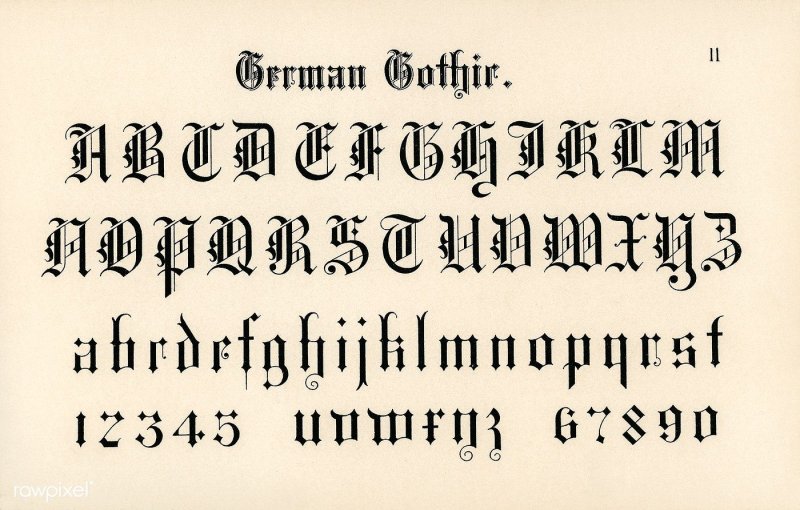 German Gothic.
11
A B C D E F G H I K L M
N O P Q R S T U V W X Y Z
a b c d e f g h i j k l m n o p q r s t
1 2 3 4 5 u v w x y z 6 7 8 9 0
rawpixel